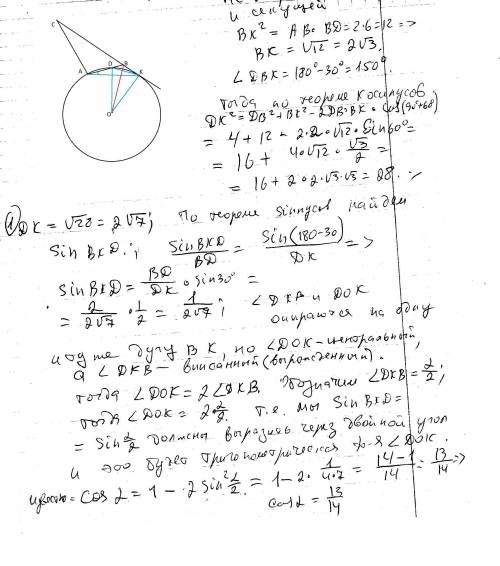 и секущей
BK² = AB·BD=2·6=12 =>
BK = √12 = 2√3.
∠DBK = 180°-30°=150°.
Тогда по теореме косинусов
DK²= DB²+BK²-2DB·BK·cos(90+60)
= 4+12 - 2·2·√12·Sin60°=
= 16+ 4√12·√3/2 =
= 16+2·2·√3·√3=28.
① DK = √28 = 2√7; По теореме синусов найдем
Sin BKD. SinBKD/BD = Sin(180-30)/DK =>
SinBKD = BD/DK · Sin30° =
= 2/2√7 · 1/2 = 1/2√7; ∠DKB и DOK
опираются на одну
и ту же дугу BK, но ∠DOK-центральный,
а ∠DKB- вписанный (вырожденный).
тогда ∠DOK = 2∠DKB. Обозначим ∠DKB=α/2;
тогда ∠DOK = 2·α/2. т.е. мы SinBKD=
= Sin α/2 должны выразить через двойной угол
и это будет тригонометрическая ф-я ∠DOK.
Cos α = 1 - 2Sin² α/2 = 1-2· 1/4·7 = 14-1/14 = 13/14 =>
cos α = 13/14
C
A
D
B
K
O